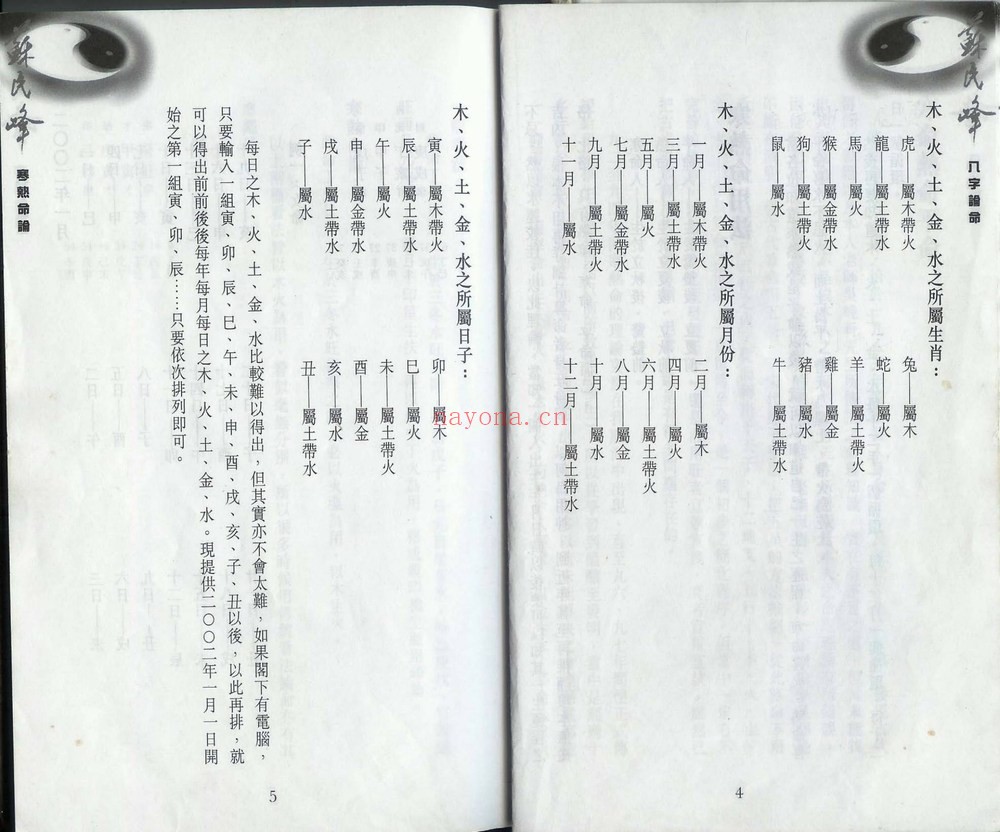 蘇民峰
八字論命
木、火、土、金、水之所屬生肖：
虎——屬木帶火
兔——屬木
龍——屬土帶水
蛇——屬火
馬——屬火
羊——屬土帶火
猴——屬金帶水
雞——屬金
狗——屬土帶火
豬——屬水
鼠——屬水
牛——屬土帶水
木、火、土、金、水之所屬月份：
一月——屬木帶火
二月——屬木
三月——屬土帶水
四月——屬火
五月——屬火
六月——屬土帶火
七月——屬金帶水
八月——屬金
九月——屬土帶火
十月——屬水
十一月——屬水
十二月——屬土帶水
4
木、火、土、金、水之所屬日子：
寅——屬木帶火
卯——屬木
辰——屬土帶水
巳——屬火
午——屬火
未——屬土帶火
申——屬金帶水
酉——屬金
戌——屬土帶火
亥——屬水
子——屬水
丑——屬土帶水
每日之木、火、土、金、水比較難以得出，但其實亦不會太難，如果閣下有電腦，
只要輸入一組寅、卯、辰、巳、午、未、申、酉、戌、亥、子、丑以後，以此再排，就
可以得出前前後後每年每月每日之木、火、土、金、水。現提供二〇〇二年一月一日開
始之第一組寅、卯、辰……只要依次排列即可。
5
蘇民峰
寒熱命論
nayona.cn